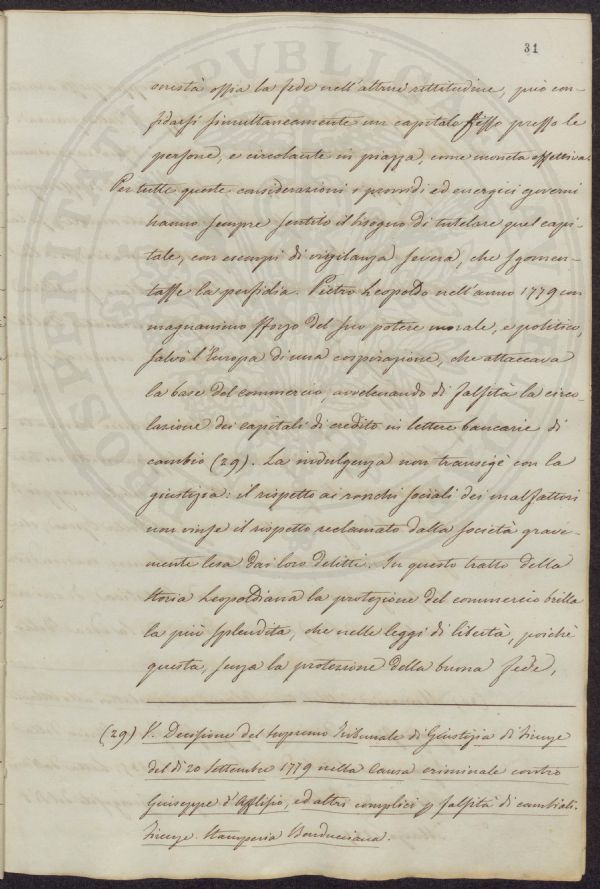 31
onestà ossia la fede nell'altrui rettitudine, può con-
fidarsi simultaneamente un capitale fisso presso le
persone, e circolante in piazza, come moneta effettiva.
Per tutte queste considerazioni i provvidi ed energici governi
hanno sempre sentito il bisogno di tutelare quel capi-
tale, con esempi di vigilanza severa, che sgomen-
tasse la perfidia. Pietro Leopoldo nell'anno 1779 con
magnanimo sforzo del suo potere morale, e politico,
salvò l'Europa di una cospirazione, che attaccava
la base del commercio, avvelenando di falsità la circo-
lazione dei capitali di credito in lettere bancarie di
cambio (29). La indulgenza non transigè con la
giustizia: il rispetto ai ranghi sociali dei malfattori
non vinse il rispetto reclamato dalla società grave-
mente lesa dai loro delitti. In questo tratto della
storia Leopoldiana la protezione del commercio brilla
la più splendita, che nelle leggi di libertà, poichè
questa, senza la protezione della buona fede,
(29) V. Decisione del Supremo Tribunale di Giustizia di Firenze
del dì 20 Settembre 1779 nella Causa criminale contro
Giuseppe d'Afflisio, ed altri complici p falsità di cambiali.
Firenze. Stamperia Bonducciana.
PROSPERITATI PUBLICAE